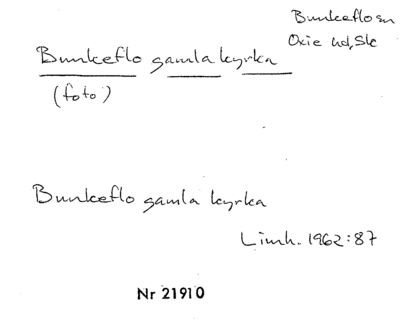 Bunkeflo sn
Oxie hd, Sk
Bunkeflo gamla kyrka
(foto)
Bunkeflo gamla kyrka
Limh. 1962:87
Nr 21910